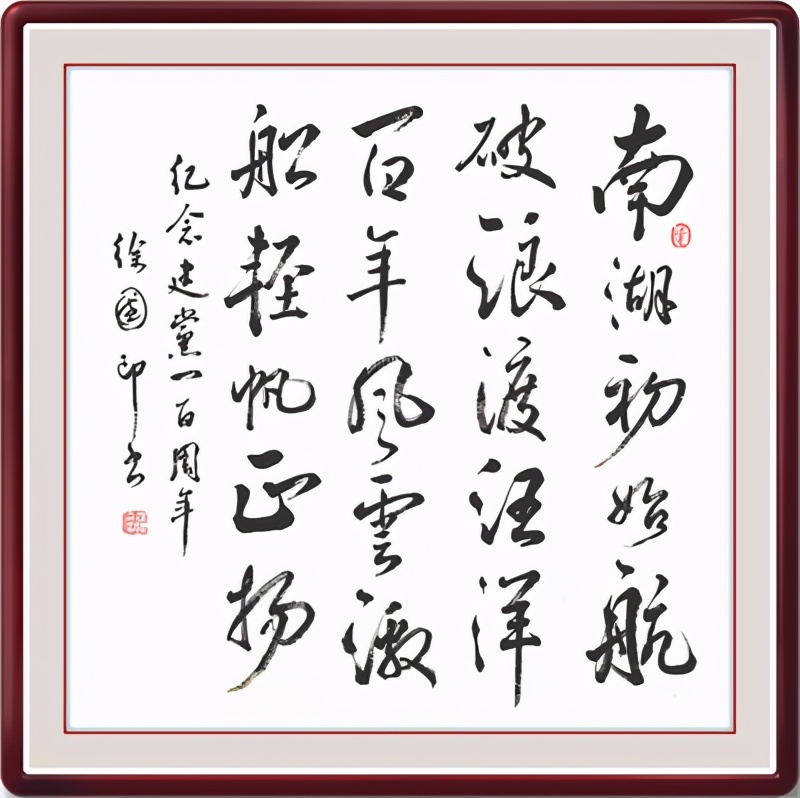 南湖初始航
破浪渡汪洋
百年风雲激
船輕帆正扬
纪念建黨一百周年
徐國印书